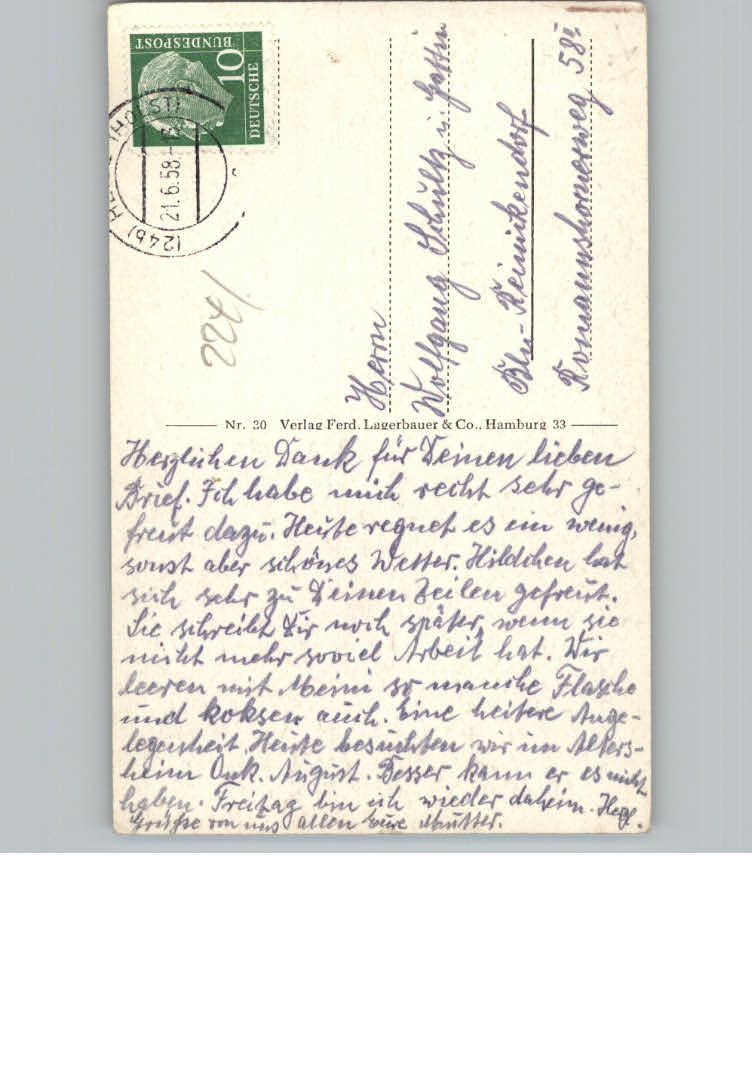 DEUTSCHE
BUNDESPOST
10
(24b) (HOLST)
21.6.58
224/
Herrn
Wolfgang Schultz u. Gattin
Bln-Reinickendorf
Romanshornerweg 58
Nr. 30 Verlag Ferd. Lagerbauer & Co., Hamburg 33
Herzlichen Dank für Deinen lieben
Brief. Ich habe mich recht sehr ge-
freut dazu. Heute regnet es ein wenig,
sonst aber schönes Wetter. Hildchen hat
sich sehr zu Deinen Zeilen gefreut.
Sie schreibt Dir noch später, wenn sie
nicht mehr soviel Arbeit hat. Wir
leeren mit so manche Flasche
und koksen auch. Eine heitere Ange-
legenheit. Heute besuchten wir im Alters-
heim Onk. August. Besser kann er es nicht
haben. Freitag bin ich wieder daheim. Herzl.
Grüße von uns allen Eure Mutter.